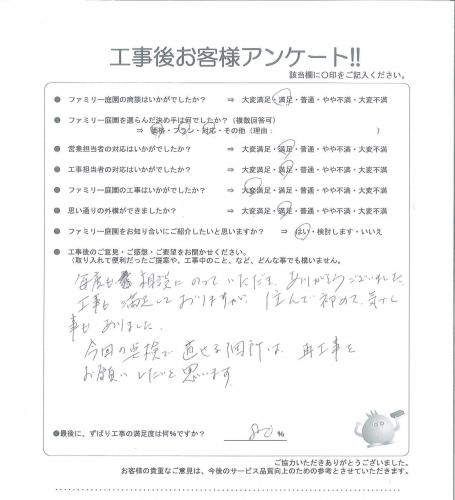 工事後お客様アンケート!!
該当欄に○印をご記入ください。
● ファミリー庭園の商談はいかがでしたか? ⇒ 大変満足・満足・普通・やや不満・大変不満
● ファミリー庭園を選らんだ決め手は何でしたか?(複数回答可)
⇒ 価格・プラン・対応・その他(理由: )
● 営業担当者の対応はいかがでしたか? ⇒ 大変満足・満足・普通・やや不満・大変不満
● 工事担当者の対応はいかがでしたか? ⇒ 大変満足・満足・普通・やや不満・大変不満
● ファミリー庭園の工事はいかがでしたか? ⇒ 大変満足・満足・普通・やや不満・大変不満
● 思い通りの外構ができましたか? ⇒ 大変満足・満足・普通・やや不満・大変不満
● ファミリー庭園をお知り合いにご紹介したいと思いますか? ⇒ はい・検討します・いいえ
● 工事後のご意見・ご感想・ご要望をお聞かせください。
(取り入れて便利だったご提案や、工事中のこと、など、どんな事でも構いません。
毎度も 相談にのっていただき、ありがとうございました。
工事も満足しておりますが、住んで初めて気づく
事もありました。
今回の点検で直せる個所は、再工事を
お願いしたいと思います
●最後に、ずばり工事の満足度は何%ですか? 80 %
ご協力いただきありがとうございました。
お客様の貴重なご意見は、今後のサービス品質向上のための参考とさせていただきます。